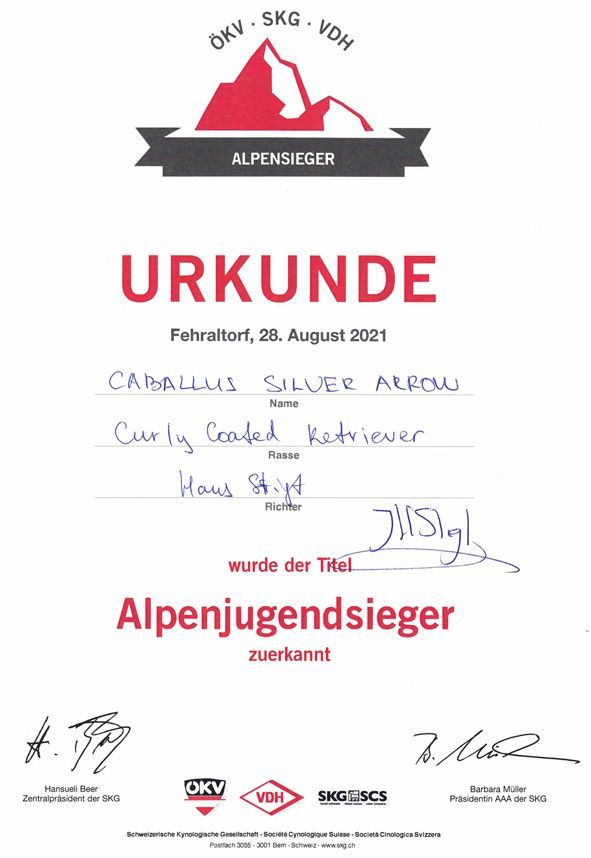 ÖKV · SKG · VDH
ALPENSIEGER
URKUNDE
Fehraltorf, 28. August 2021
CABALLUS SILVER ARROW
Name
Curly Coated Retriever
Rasse
Hans
Richter
wurde der Titel
Alpenjugendsieger
zuerkannt
Hansueli Beer
Zentralpräsident der SKG
ÖKV
VDH
SKG SCS
Barbara Müller
Präsidentin AAA der SKG
Schweizerische Kynologische Gesellschaft - Société Cynologique Suisse - Società Cinologica Svizzera
Postfach 3055 - 3001 Bern - Schweiz - www.skg.ch